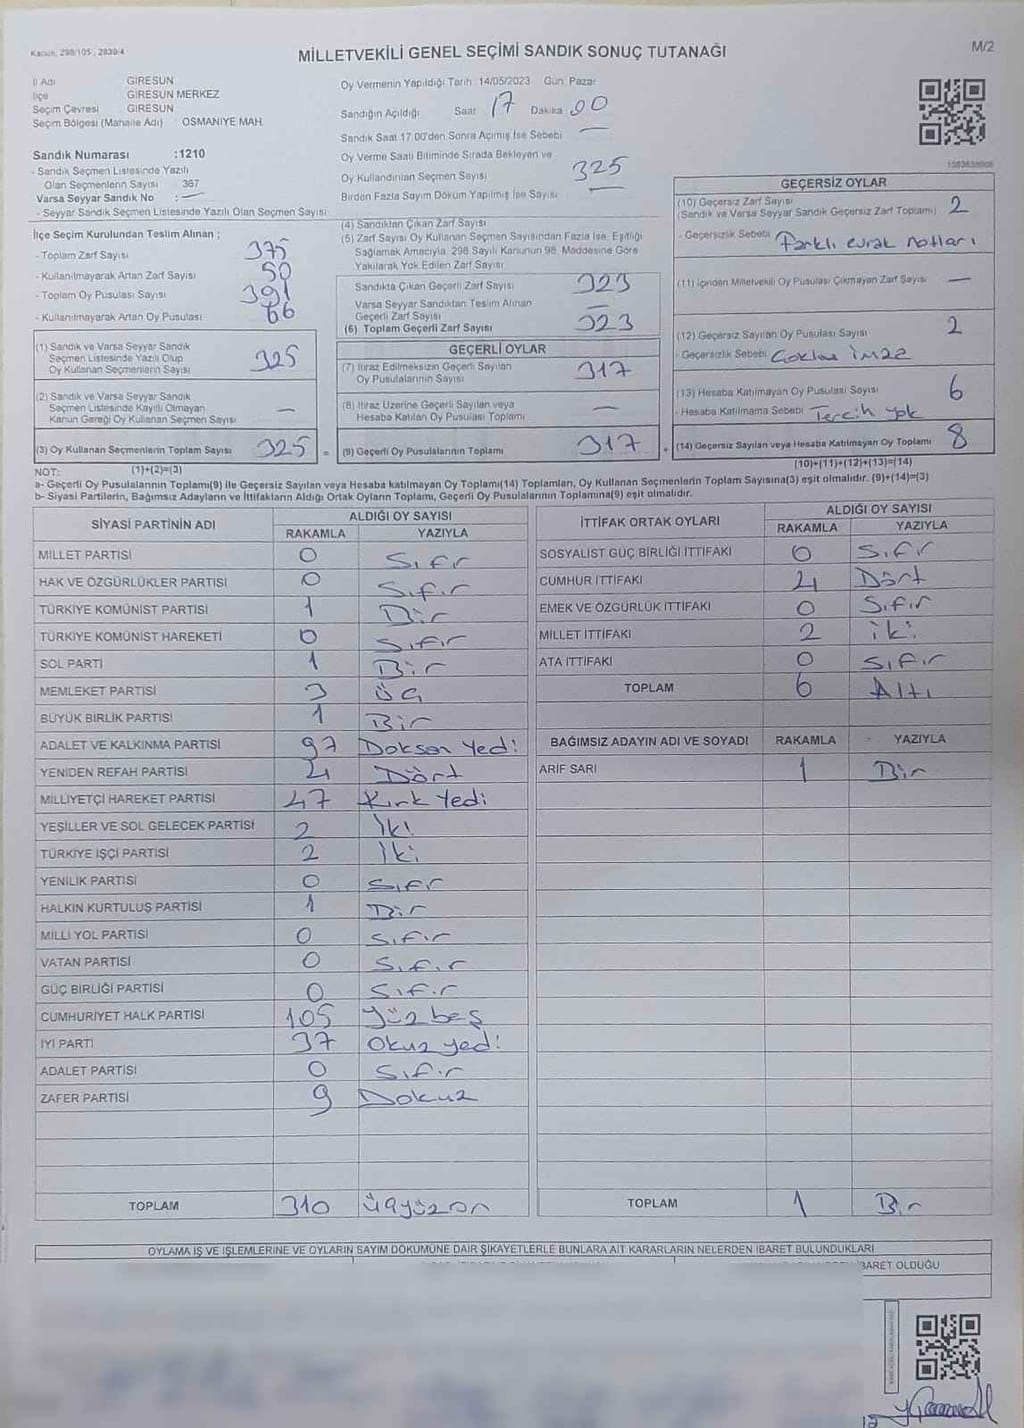 Kanun; 298/105 , 2839/4
MİLLETVEKİLİ GENEL SEÇİMİ SANDIK SONUÇ TUTANAĞI
M/2
İl Adı GİRESUN
İlçe GİRESUN MERKEZ
Seçim Çevresi GİRESUN
Seçim Bölgesi (Mahalle Adı) OSMANİYE MAH.
Sandık Numarası :1210
- Sandık Seçmen Listesinde Yazılı
Olan Seçmenlerin Sayısı 367
Varsa Seyyar Sandık No : —
- Seyyar Sandık Seçmen Listesinde Yazılı Olan Seçmen Sayısı
İlçe Seçim Kurulundan Teslim Alınan ;
- Toplam Zarf Sayısı 375
- Kullanılmayarak Artan Zarf Sayısı 50
- Toplam Oy Pusulası Sayısı 391
- Kullanılmayarak Artan Oy Pusulası 66
(1) Sandık ve Varsa Seyyar Sandık
Seçmen Listesinde Yazılı Olup
Oy Kullanan Seçmenlerin Sayısı 325
(2) Sandık ve Varsa Seyyar Sandık
Seçmen Listesinde Kayıtlı Olmayan
Kanun Gereği Oy Kullanan Seçmen Sayısı —
(3) Oy Kullanan Seçmenlerin Toplam Sayısı 325 =
Oy Vermenin Yapıldığı Tarih :14/05/2023 Gün: Pazar
Sandığın Açıldığı Saat 17 Dakika 00
Sandık Saat 17.00'den Sonra Açılmış İse Sebebi —
Oy Verme Saati Bitiminde Sırada Bekleyen ve
Oy Kullandırılan Seçmen Sayısı 325
Birden Fazla Sayım Döküm Yapılmış İse Sayısı —
(4) Sandıktan Çıkan Zarf Sayısı
(5) Zarf Sayısı Oy Kullanan Seçmen Sayısından Fazla İse, Eşitliği
Sağlamak Amacıyla, 298 Sayılı Kanunun 98. Maddesine Göre
Yakılarak Yok Edilen Zarf Sayısı
Sandıkta Çıkan Geçerli Zarf Sayısı 323
Varsa Seyyar Sandıktan Teslim Alınan
Geçerli Zarf Sayısı —
(6) Toplam Geçerli Zarf Sayısı 323
GEÇERLİ OYLAR
(7) İtiraz Edilmeksizin Geçerli Sayılan
Oy Pusulalarının Sayısı 317
(8) İtiraz Üzerine Geçerli Sayılan veya
Hesaba Katılan Oy Pusulası Toplamı —
(9) Geçerli Oy Pusulalarının Toplamı 317 +
GEÇERSİZ OYLAR
(10) Geçersiz Zarf Sayısı
(Sandık ve Varsa Seyyar Sandık Geçersiz Zarf Toplamı) 2
- Geçersizlik Sebebi Farklı evrak notları
(11) İçinden Milletvekili Oy Pusulası Çıkmayan Zarf Sayısı —
(12) Geçersiz Sayılan Oy Pusulası Sayısı 2
- Geçersizlik Sebebi
(13) Hesaba Katılmayan Oy Pusulası Sayısı 6
- Hesaba Katılmama Sebebi Tercih yok
(14) Geçersiz Sayılan veya Hesaba Katılmayan Oy Toplamı 8
NOT: (1)+(2)=(3) (10)+(11)+(12)+(13)=(14)
a- Geçerli Oy Pusulalarının Toplamı(9) ile Geçersiz Sayılan veya Hesaba katılmayan Oy Toplamı(14) Toplamları, Oy Kullanan Seçmenlerin Toplam Sayısına(3) eşit olmalıdır. (9)+(14)=(3)
b- Siyasi Partilerin, Bağımsız Adayların ve İttifakların Aldığı Ortak Oyların Toplamı, Geçerli Oy Pusulalarının Toplamına(9) eşit olmalıdır.
SİYASİ PARTİNİN ADI ALDIĞI OY SAYISI
RAKAMLA YAZIYLA
MİLLET PARTİSİ 0 Sıfır
HAK VE ÖZGÜRLÜKLER PARTİSİ 0 Sıfır
TÜRKİYE KOMÜNİST PARTİSİ 1 Bir
TÜRKİYE KOMÜNİST HAREKETİ 0 Sıfır
SOL PARTİ 1 Bir
MEMLEKET PARTİSİ 3 üç
BÜYÜK BİRLİK PARTİSİ 1 Bir
ADALET VE KALKINMA PARTİSİ 97 Doksan Yedi
YENİDEN REFAH PARTİSİ 4 Dört
MİLLİYETÇİ HAREKET PARTİSİ 47 Kırk Yedi
YEŞİLLER VE SOL GELECEK PARTİSİ 2 İki
TÜRKİYE İŞÇİ PARTİSİ 2 İki
YENİLİK PARTİSİ 0 Sıfır
HALKIN KURTULUŞ PARTİSİ 1 Bir
MİLLİ YOL PARTİSİ 0 Sıfır
VATAN PARTİSİ 0 Sıfır
GÜÇ BİRLİĞİ PARTİSİ 0 Sıfır
CUMHURİYET HALK PARTİSİ 105 Yüz beş
İYİ PARTİ 37 Okuz yedi
ADALET PARTİSİ 0 Sıfır
ZAFER PARTİSİ 9 Dokuz
TOPLAM 310 üçyüzon
İTTİFAK ORTAK OYLARI ALDIĞI OY SAYISI
RAKAMLA YAZIYLA
SOSYALİST GÜÇ BİRLİĞİ İTTİFAKI 0 Sıfır
CUMHUR İTTİFAKI 4 Dört
EMEK VE ÖZGÜRLÜK İTTİFAKI 0 Sıfır
MİLLET İTTİFAKI 2 iki
ATA İTTİFAKI 0 Sıfır
TOPLAM 6 Altı
BAĞIMSIZ ADAYIN ADI VE SOYADI RAKAMLA YAZIYLA
ARİF SARI 1 Bir
TOPLAM 1 Bir
OYLAMA İŞ VE İŞLEMLERİNE VE OYLARIN SAYIM DÖKÜMÜNE DAİR ŞİKAYETLERLE BUNLARA AİT KARARLARIN NELERDEN İBARET BULUNDUKLARI
İBARET OLDUĞU